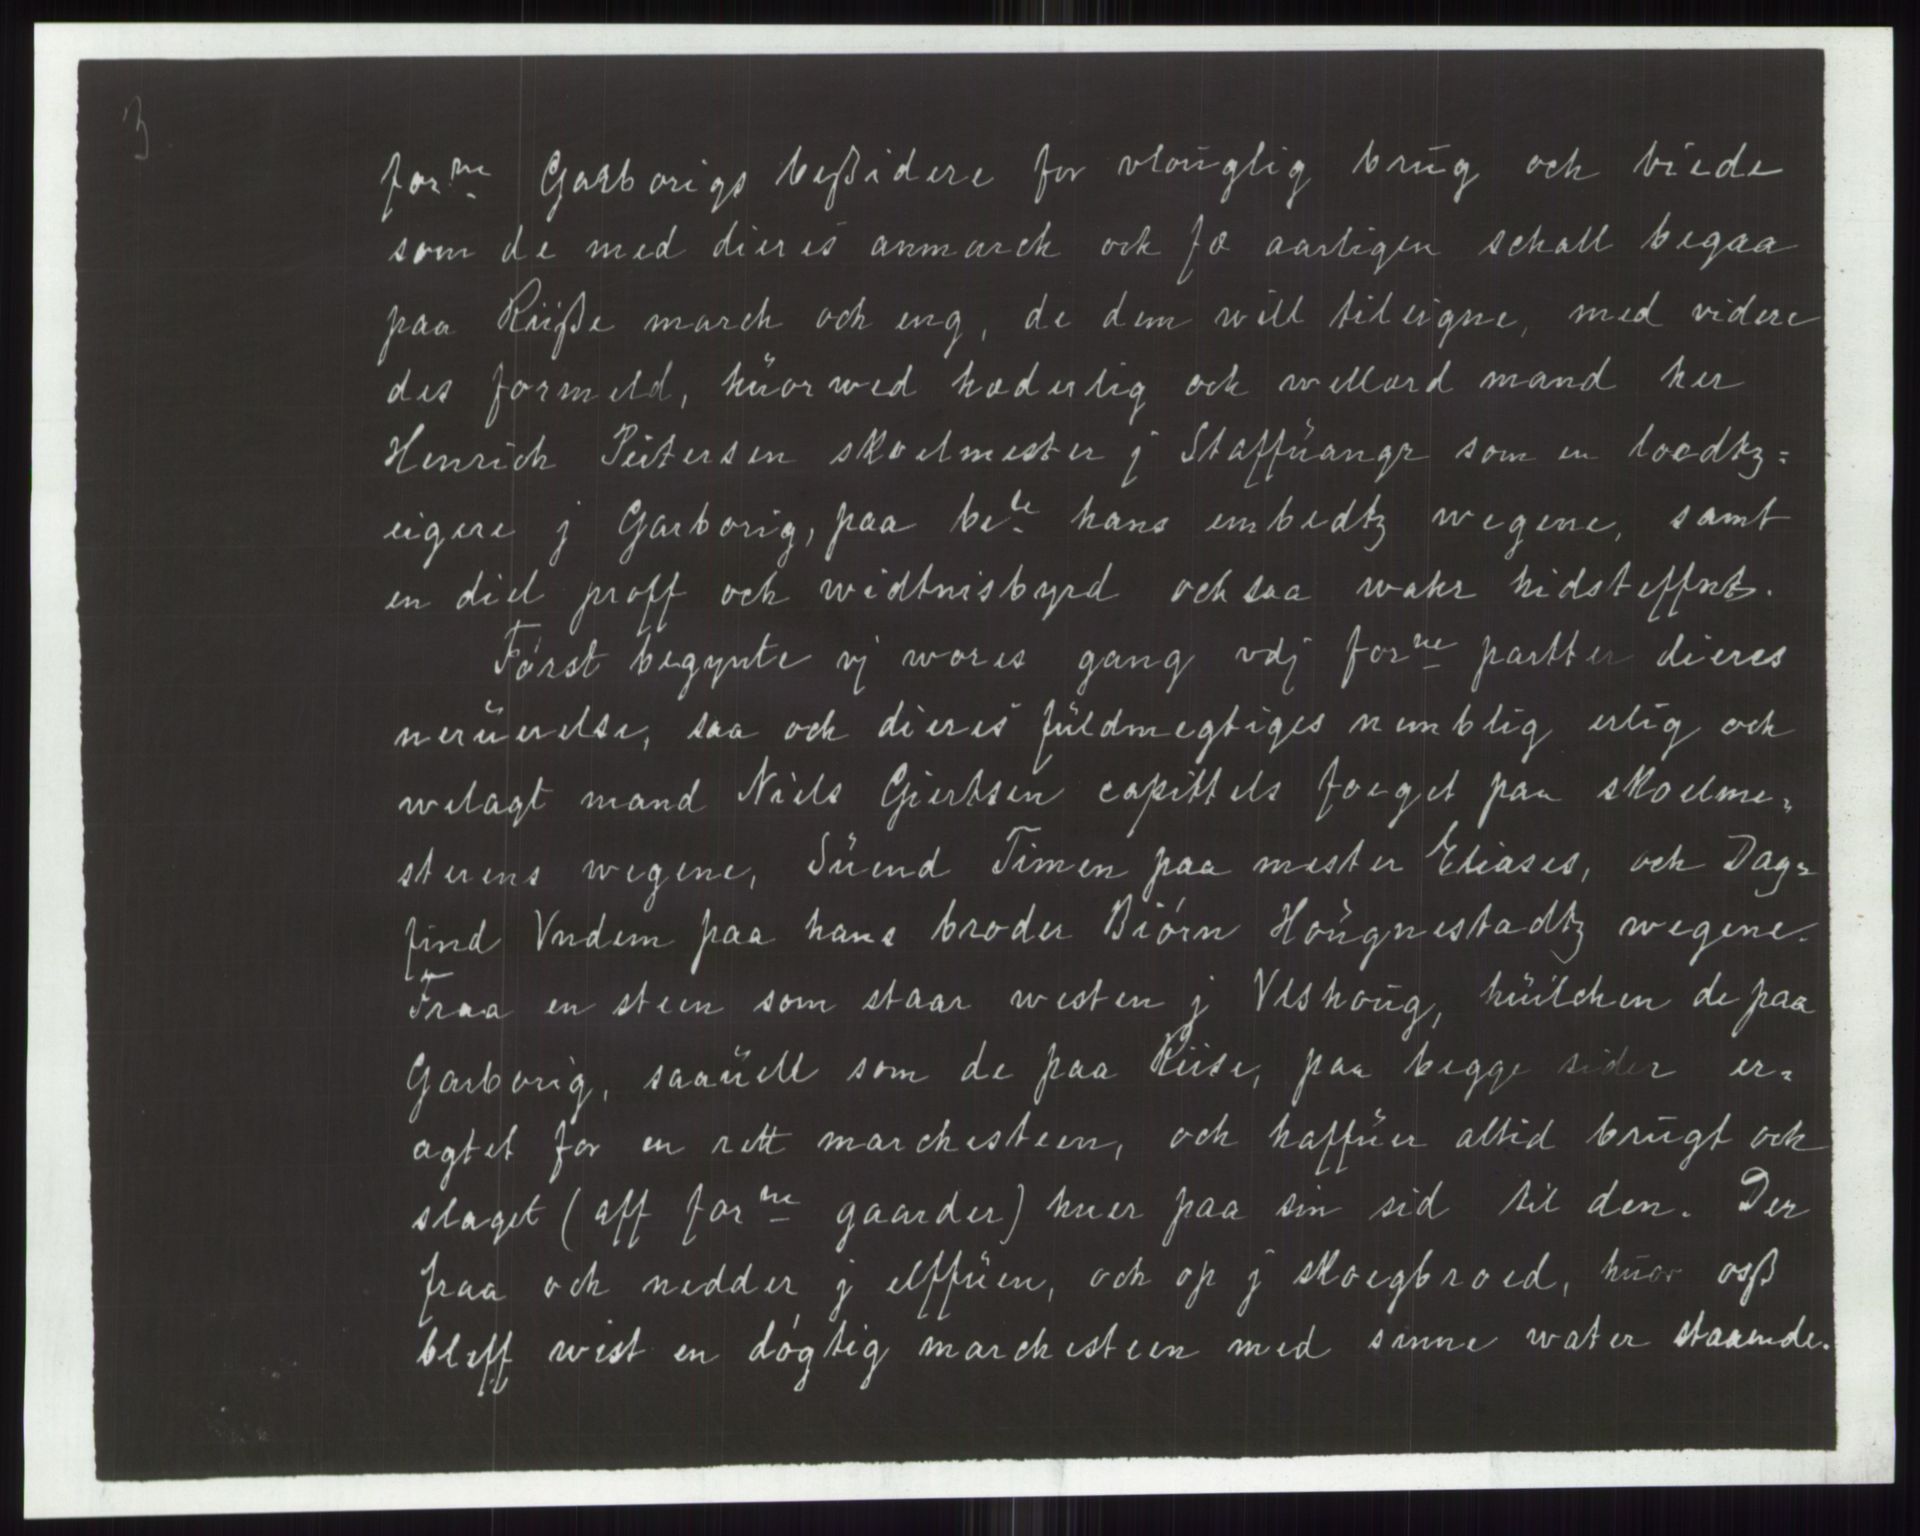 3
forne Garborigs beßidere for vlouglig brug och biede
som de med dieris anmarck och fæ aarligen schall begaa
paa Riiße march och eng, de dem will tileigne, med videre
des formeld, huorwed hæderlig och wellærd mand her
Henrich Peitersen skoelmester j Staffuangr som en loedtz=
eigere j Garborig, paa bete hans embedtz wegene, samt
en diel proff och widtnisbyrd ochsaa wahr hidsteffnt.
Først begynte vj wores gang vdj forne partter dieres
neruerelse, saa och dieris fuldmegtiges nemblig erlig och
welagt mand Niels Giertsen capittels foeget paa skoelme=
sterens wegene, Suend Timen paa mester Eliases, och Dag=
find Vndem paa hans broder Biørn Hougnestadtz wegene.
Fraa en steen som staar westen j Vlshoug, huilchen de paa
Garborig, saauell som de paa Riise, paa begge sider er=
agtet for en rett marchesteen, och haffuer altid brugt och
slaget (aff forne gaarder) huer paa sin sid til den. Der
fraa och nedder j elffuen, och op j skoegbroed, huor osß
bleff wist en døgtig marchesteen med sinne water staaende.